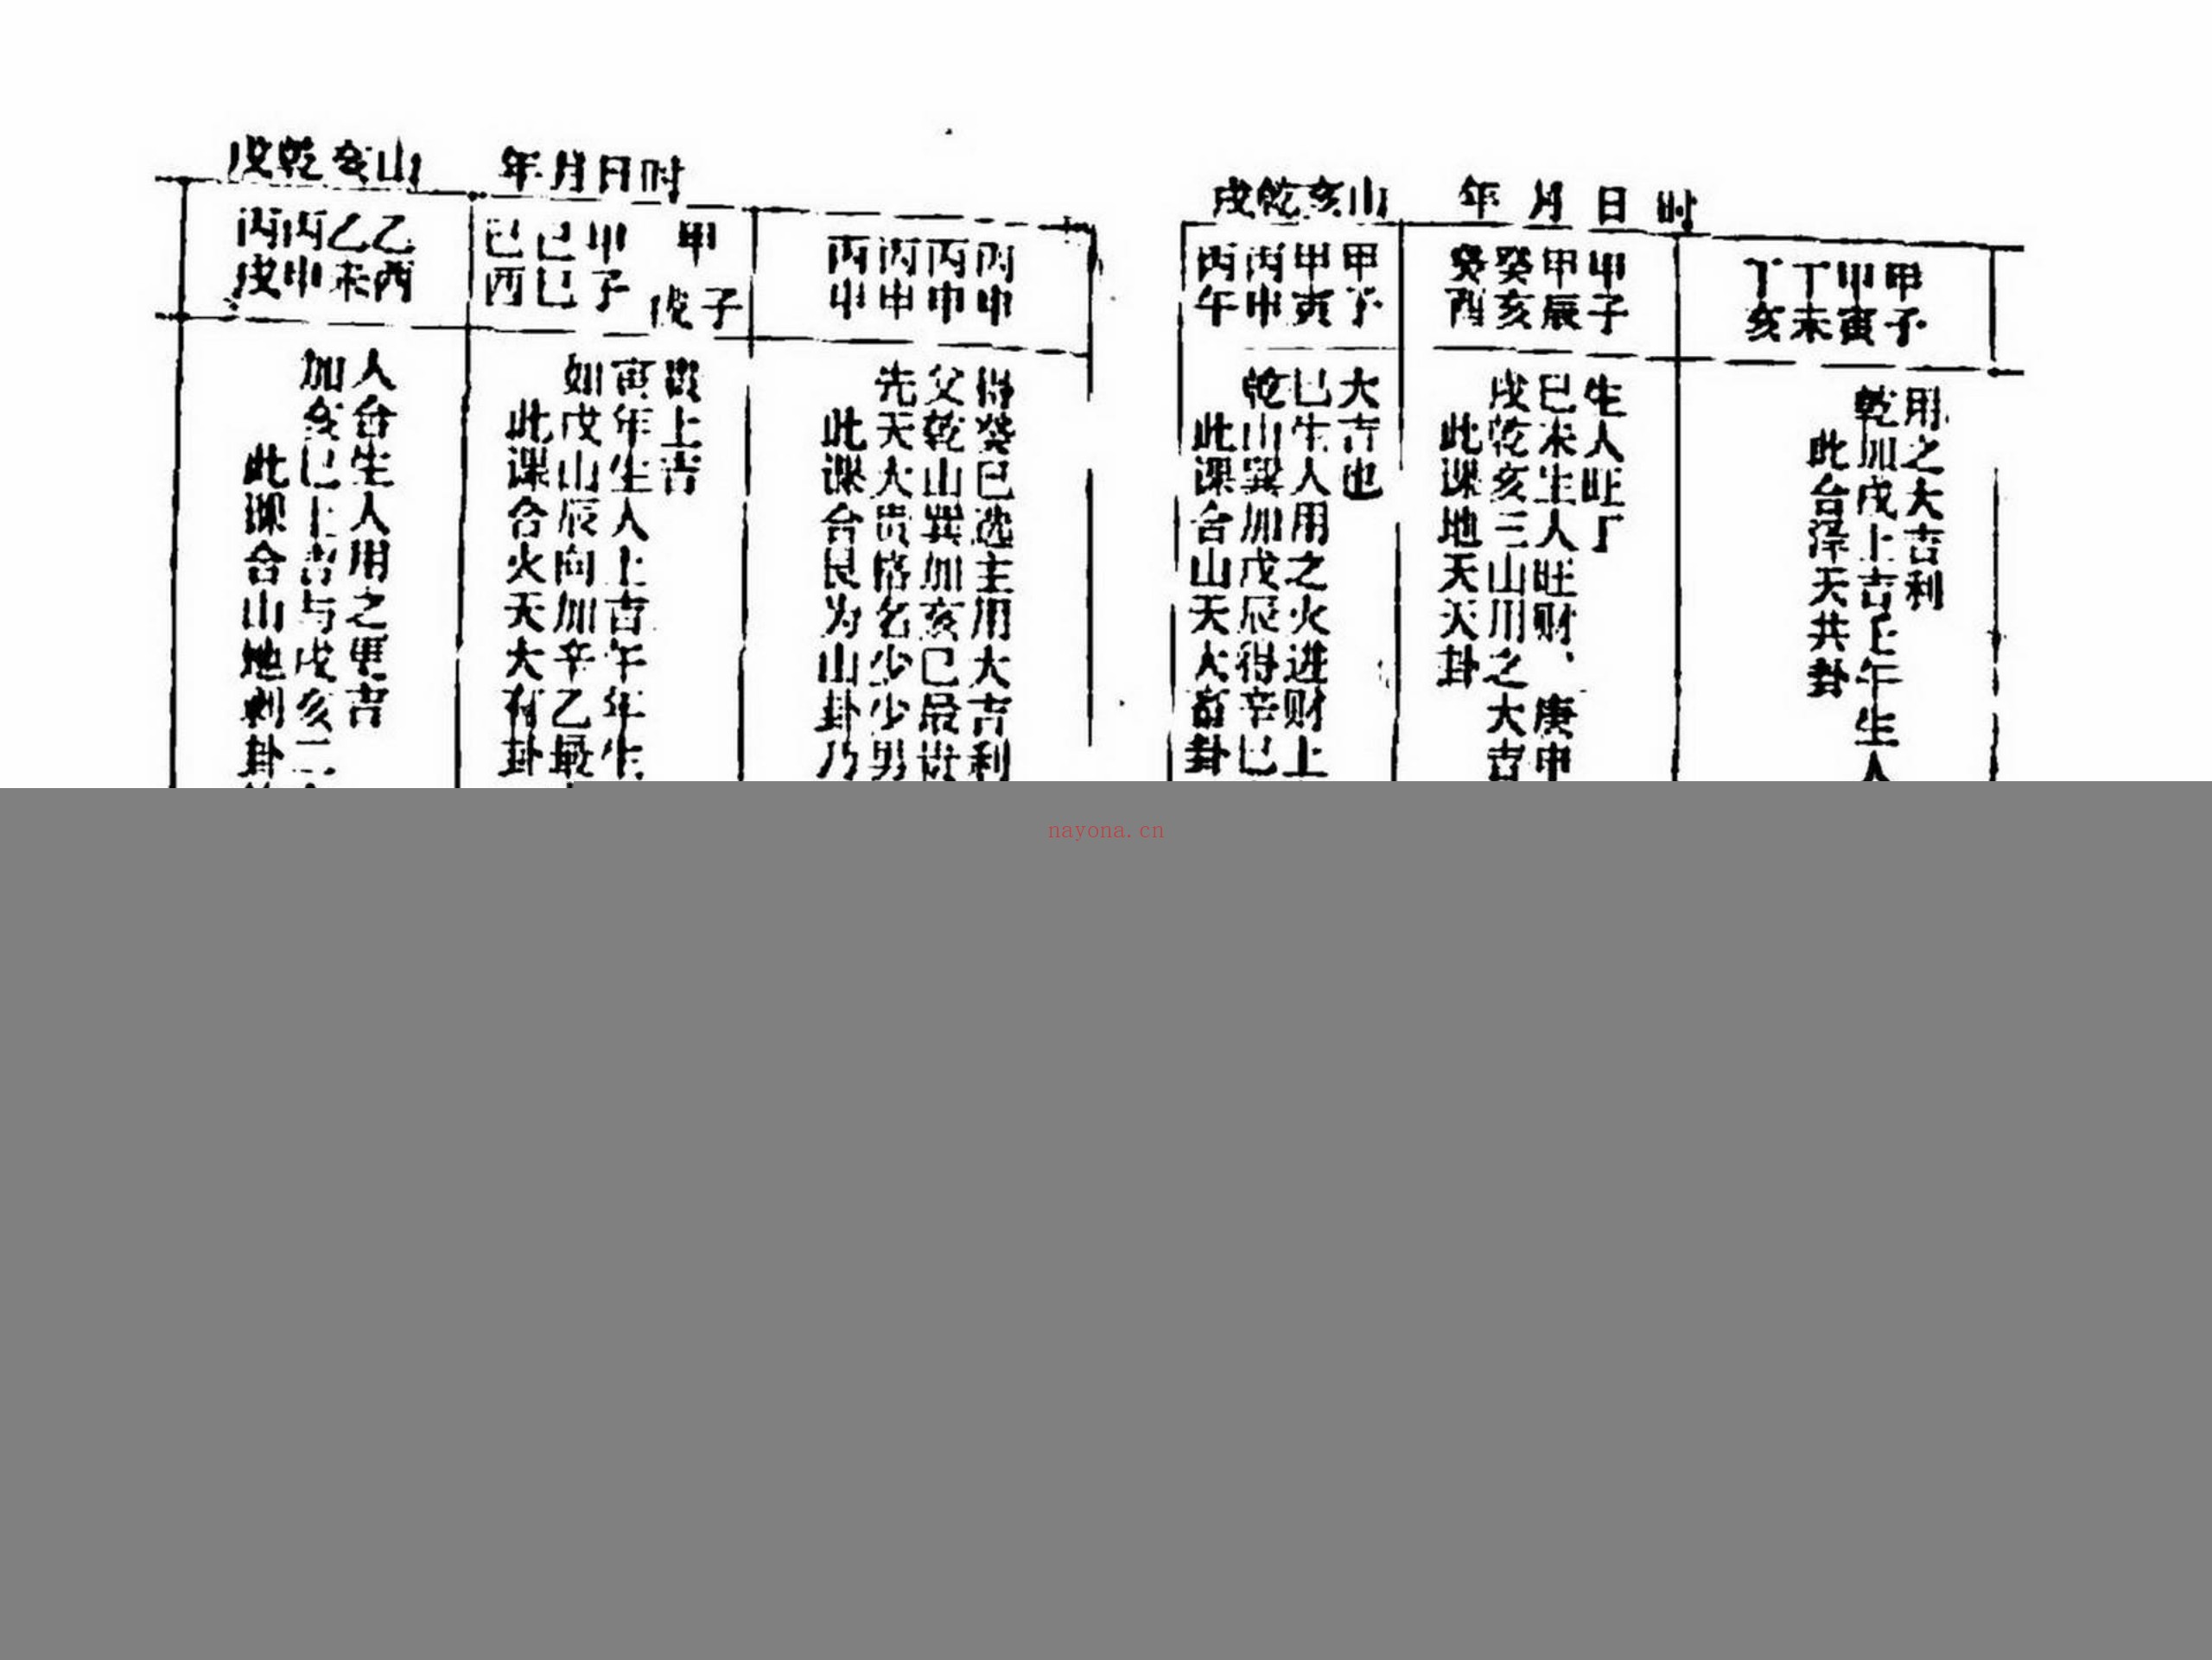 戌乾亥山 年月日时
丙戌
丙申
乙未
乙酉
此课合山地剥卦
加亥巳上吉与戌亥二
人合生人用之更吉
己酉
己巳
甲子
甲戌
子
此课合火天大有卦
如戌山辰向加辛乙最
寅年生人上吉午年生
上吉
丙申
丙申
丙申
丙申
此课合艮为山卦乃
先天大贵格名少少男
父乾山巽加亥巳最贵
得癸巳选主用大吉利
戌乾亥山 年月日时
丙午
丙申
甲寅
甲子
此课合山天大畜卦
乾山巽加戌辰得辛巳
巳生人用之火进财上
大吉也
癸酉
癸亥
甲辰
甲子
此课地天天卦
戌乾亥三山用之大吉
己未生人旺财、庚申
生人旺丁
丁亥
丁未
甲寅
甲子
此合泽天共卦
乾加戌上吉壬午生人
用之大吉利
nayona.cn